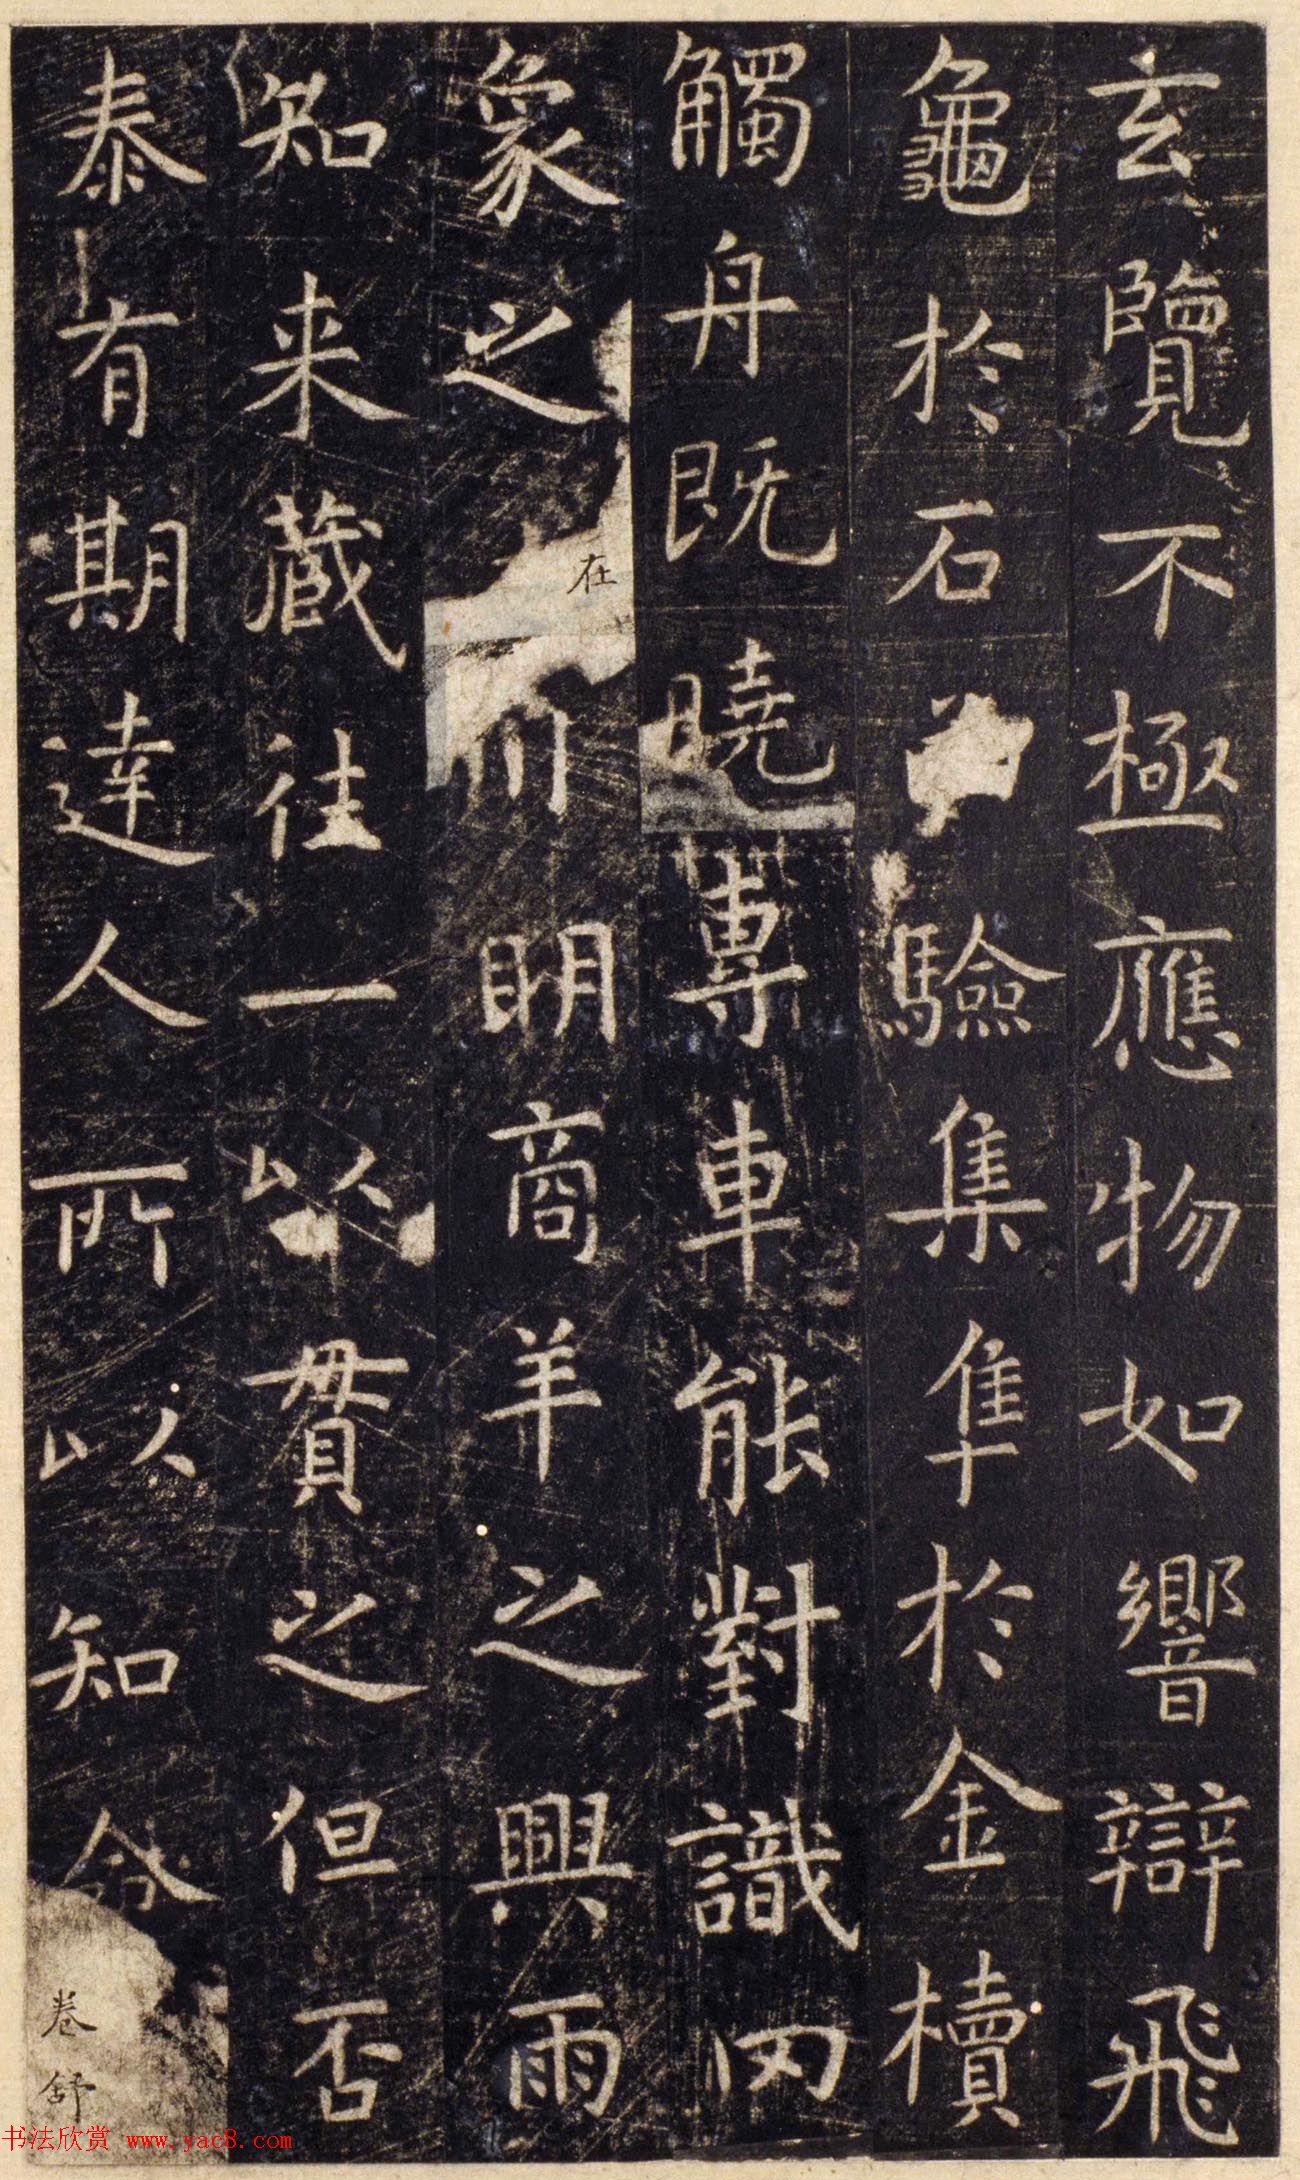 玄覽不極應物如響辯飛
龜於石驗集隼於金櫝
觸舟既曉專車能對識罔
象之在川明商羊之興雨
知来藏往一以貫之但否
泰有期達人所以知命
卷舒
书法欣赏 www.yac8.com